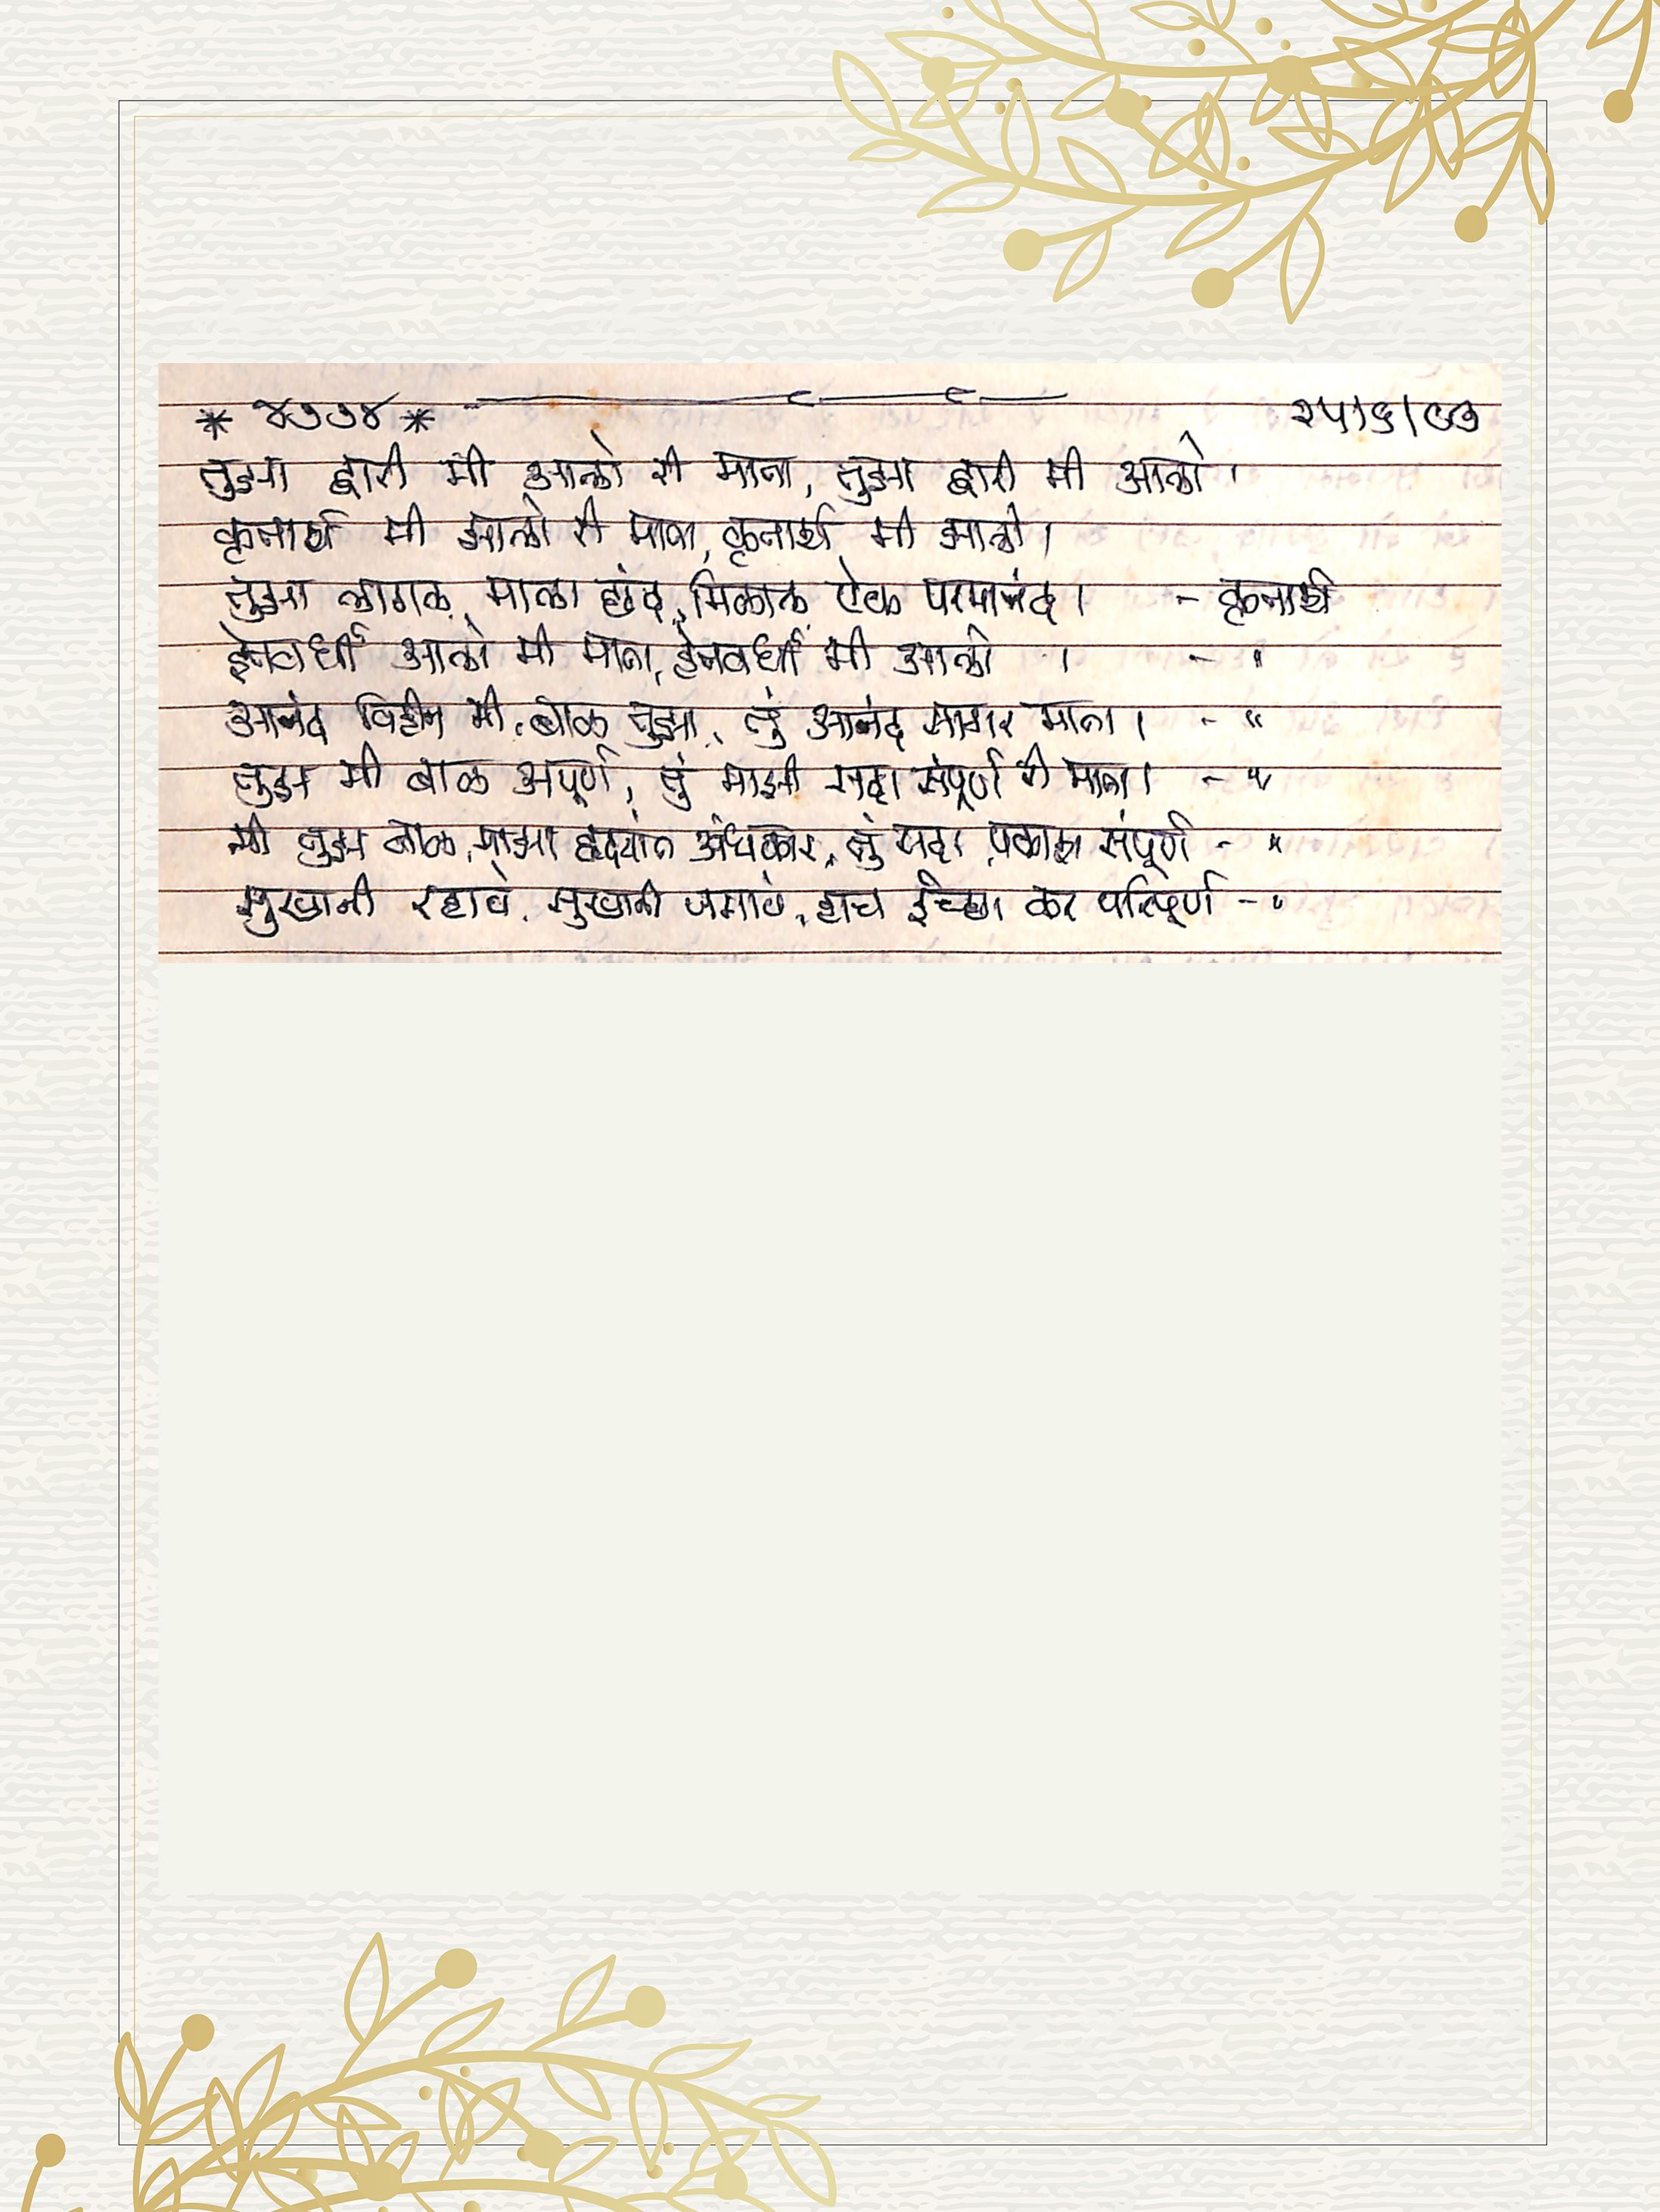 * ४७७४ * २५।६।८७
तुझ्या द्वारी मी आलो रे माता, तुझ्या द्वारी मी आलो ।
कृतार्थ मी झालो रे माता, कृतार्थ मी झालो ।
तुझा लागल माला छंद, मिळाल ऐक परमानंद । - कृतार्थ
आलो मी माता, मी आलो । - "
आनंद विहीन मी बाळ तुझा, तुं आनंद सागर माता । - "
तुझा मी बाळ अपूर्ण, तुं माझी सदा संपूर्ण रे माता । - "
मी तुझा बाळ, माझ्या हृदयांत अंधकार, तुं सदा प्रकाश संपूर्ण - "
सुखानी रहावे, सुखानी जगावे, हीच ईच्छा कर परिपूर्ण - "